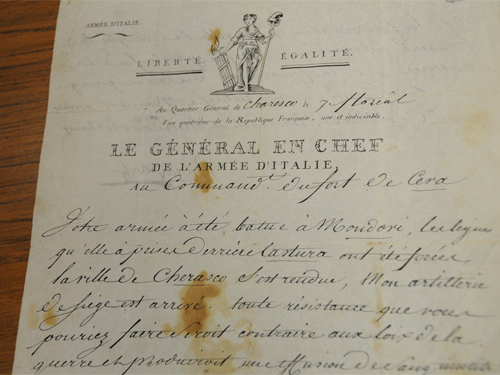 ARMÉE D'ITALIE.
LIBERTÉ ÉGALITÉ.
Au Quartier Général de Charesco le 7 floréal
l'an quatrième de la République Française, une et indivisible.
LE GÉNÉRAL EN CHEF
DE L'ARMÉE D'ITALIE,
au Command.t du fort de Ceva
Votre armée a été batue à Mondovi, les lignes
qu'elle a prises derrière la stura ont été forcées,
la ville de Cherasco s'est rendue, Mon artillerie
de siège est arrivé. toute résistance que vous
pouriez faire seroit contraire aux loix de la
guerre et produiroit une effusion de sang